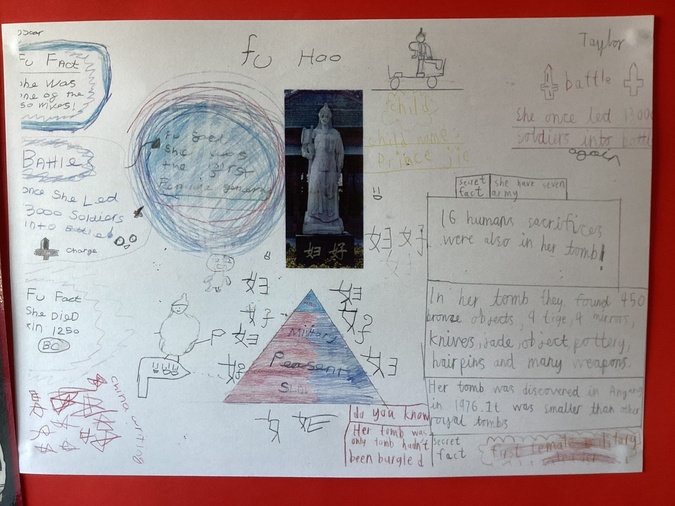 fu Hao
Taylor
Fu FAct
She was
one of the
60 wives!
BAttle
once She Led
3000 Soldiers
into Battle
Charge
Fu Fact
She Died
in 1250
BC
China writing
Fu
she was
the first
Female general
妇好
child
child name:
prince jie
battle
She once led 13000
soldiers into battle
again
secret
fact
she have seven
army
16 humans sacrifices
were also in her tomb!
In her tomb they found 450
bronze objects, 4 tige, 4 mirrors,
knives, jade, object pottery,
hairpins and many weapons.
Her tomb was discovered in Anyang
in 1976. It was smaller than other
royal tombs
secret
fact
do you know
Her tomb was
only tomb hadn't
been burgled
Military
Peasent
妇好